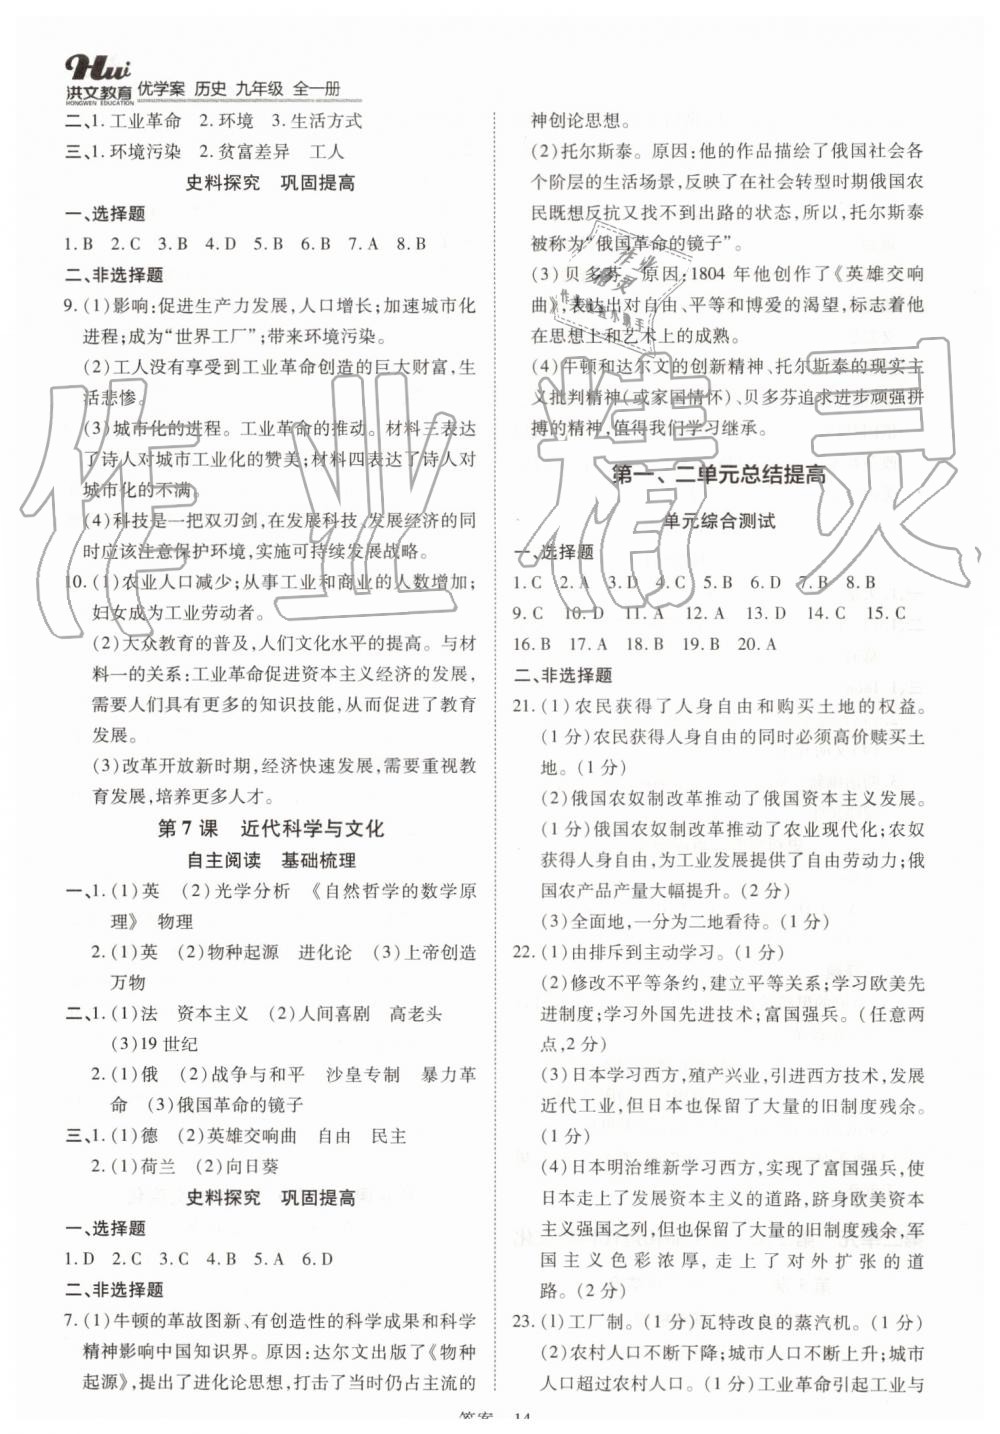 Hui
洪文教育
HONGWEN EDUCATION
优学案 历史 九年级 全一册
二、1. 工业革命 2. 环境 3. 生活方式
三、1. 环境污染 2. 贫富差异 工人
史料探究 巩固提高
一、选择题
1. B 2. C 3. B 4. D 5. B 6. B 7. A 8. B
二、非选择题
9. (1)影响:促进生产力发展,人口增长;加速城市化
进程;成为“世界工厂”;带来环境污染。
(2)工人没有享受到工业革命创造的巨大财富,生
活悲惨。
(3)城市化的进程。工业革命的推动。材料三表达
了诗人对城市工业化的赞美;材料四表达了诗人对
城市化的不满。
(4)科技是一把双刃剑,在发展科技、发展经济的同
时应该注意保护环境,实施可持续发展战略。
10. (1)农业人口减少;从事工业和商业的人数增加;
妇女成为工业劳动者。
(2)大众教育的普及,人们文化水平的提高。与材
料一的关系:工业革命促进资本主义经济的发展,
需要文人们具有更多的知识技能,从而促进了教育
发展。
(3)改革开放新时期,经济快速发展,需重视教育,
教育发展,培养更多人才。
第7课 近代科学与文化
自主阅读 基础梳理
一、1. (1)英 (2)光学分析 《自然哲学的数学原
理》 物理
2. (1)英 (2)物种起源 进化论 (3)上帝创造
万物
二、1. (1)法 资本主义 (2)人间喜剧 高老头
(3)19世纪
2. (1)俄 (2)战争与和平 沙皇专制 暴力革
命 (3)俄国革命的镜子
三、1. (1)德 (2)英雄交响曲 自由 民主
2. (1)荷兰 (2)向日葵
史料探究 巩固提高
一、选择题
1. D 2. C 3. C 4. B 5. A 6. D
二、非选择题
7. (1)牛顿的革故图新、有创造性的科学成果和科学
精神影响中国知识界。原因:达尔文出版了《物种
起源》,提出了进化论思想,打击了当时仍占主流的
神创论思想。
(2)托尔斯泰。原因:他的作品描绘了俄国社会各
个阶层的生活场景,反映了在社会转型时期俄国农
民既想反抗又找不到出路的状态,所以,托尔斯泰
被称为“俄国革命的镜子”。
(3)贝多芬。原因:1804年他创作了《英雄交响
曲》,表达出对自由、平等和博爱的渴望,标志着他
在思想上和艺术上的成熟。
(4)牛顿和达尔文的创新精神、托尔斯泰的现实主
义批判精神(或家国情怀)、贝多芬追求进步顽强拼
搏的精神,值得我们学习继承。
第一、二单元总结提高
单元综合测试
一、选择题
1. C 2. A 3. D 4. C 5. B 6. D 7. B 8. B
9. C 10. D 11. A 12. A 13. D 14. C 15. C
16. B 17. A 18. B 19. B 20. A
二、非选择题
21. (1)农民获得了人身自由和购买土地的权益。
(1分)农民获得人身自由的同时必须高价赎买土
地。(1分)
(2)俄国农奴制改革推动了俄国资本主义发展。
俄国农奴制改革推动了农业现代化;农奴
获得人身自由,为工业发展提供了自由劳动力;俄
国农产品产量大幅提升。(2分)
(3)全面地,一分为二地看待。(1分)
22. (1)由排斥到主动学习。(1分)
(2)修改不平等条约,建立平等关系;学习欧美先
进制度;学习外国先进技术;富国强兵。(任意两
点,2分)
(3)日本学习西方,殖产兴业,引进西方技术,发展
近代工业,但日本也保留了大量的旧制度残余。
(1分)
(4)日本明治维新学习西方,实现了富国强兵,使
日本走上了发展资本主义的道路,跻身欧美资本
主义强国之列,但保留了大量的旧制度残余,军
国主义色彩浓厚,走上了对外扩张的道
路。(2分)
23. (1)工厂制。(1分)瓦特改良的蒸汽机。(1分)
(2)农村人口不断下降;城市人口不断上升;城市
人口超过农村人口。(1分)工业革命引起工业与
答案 14
作业精灵